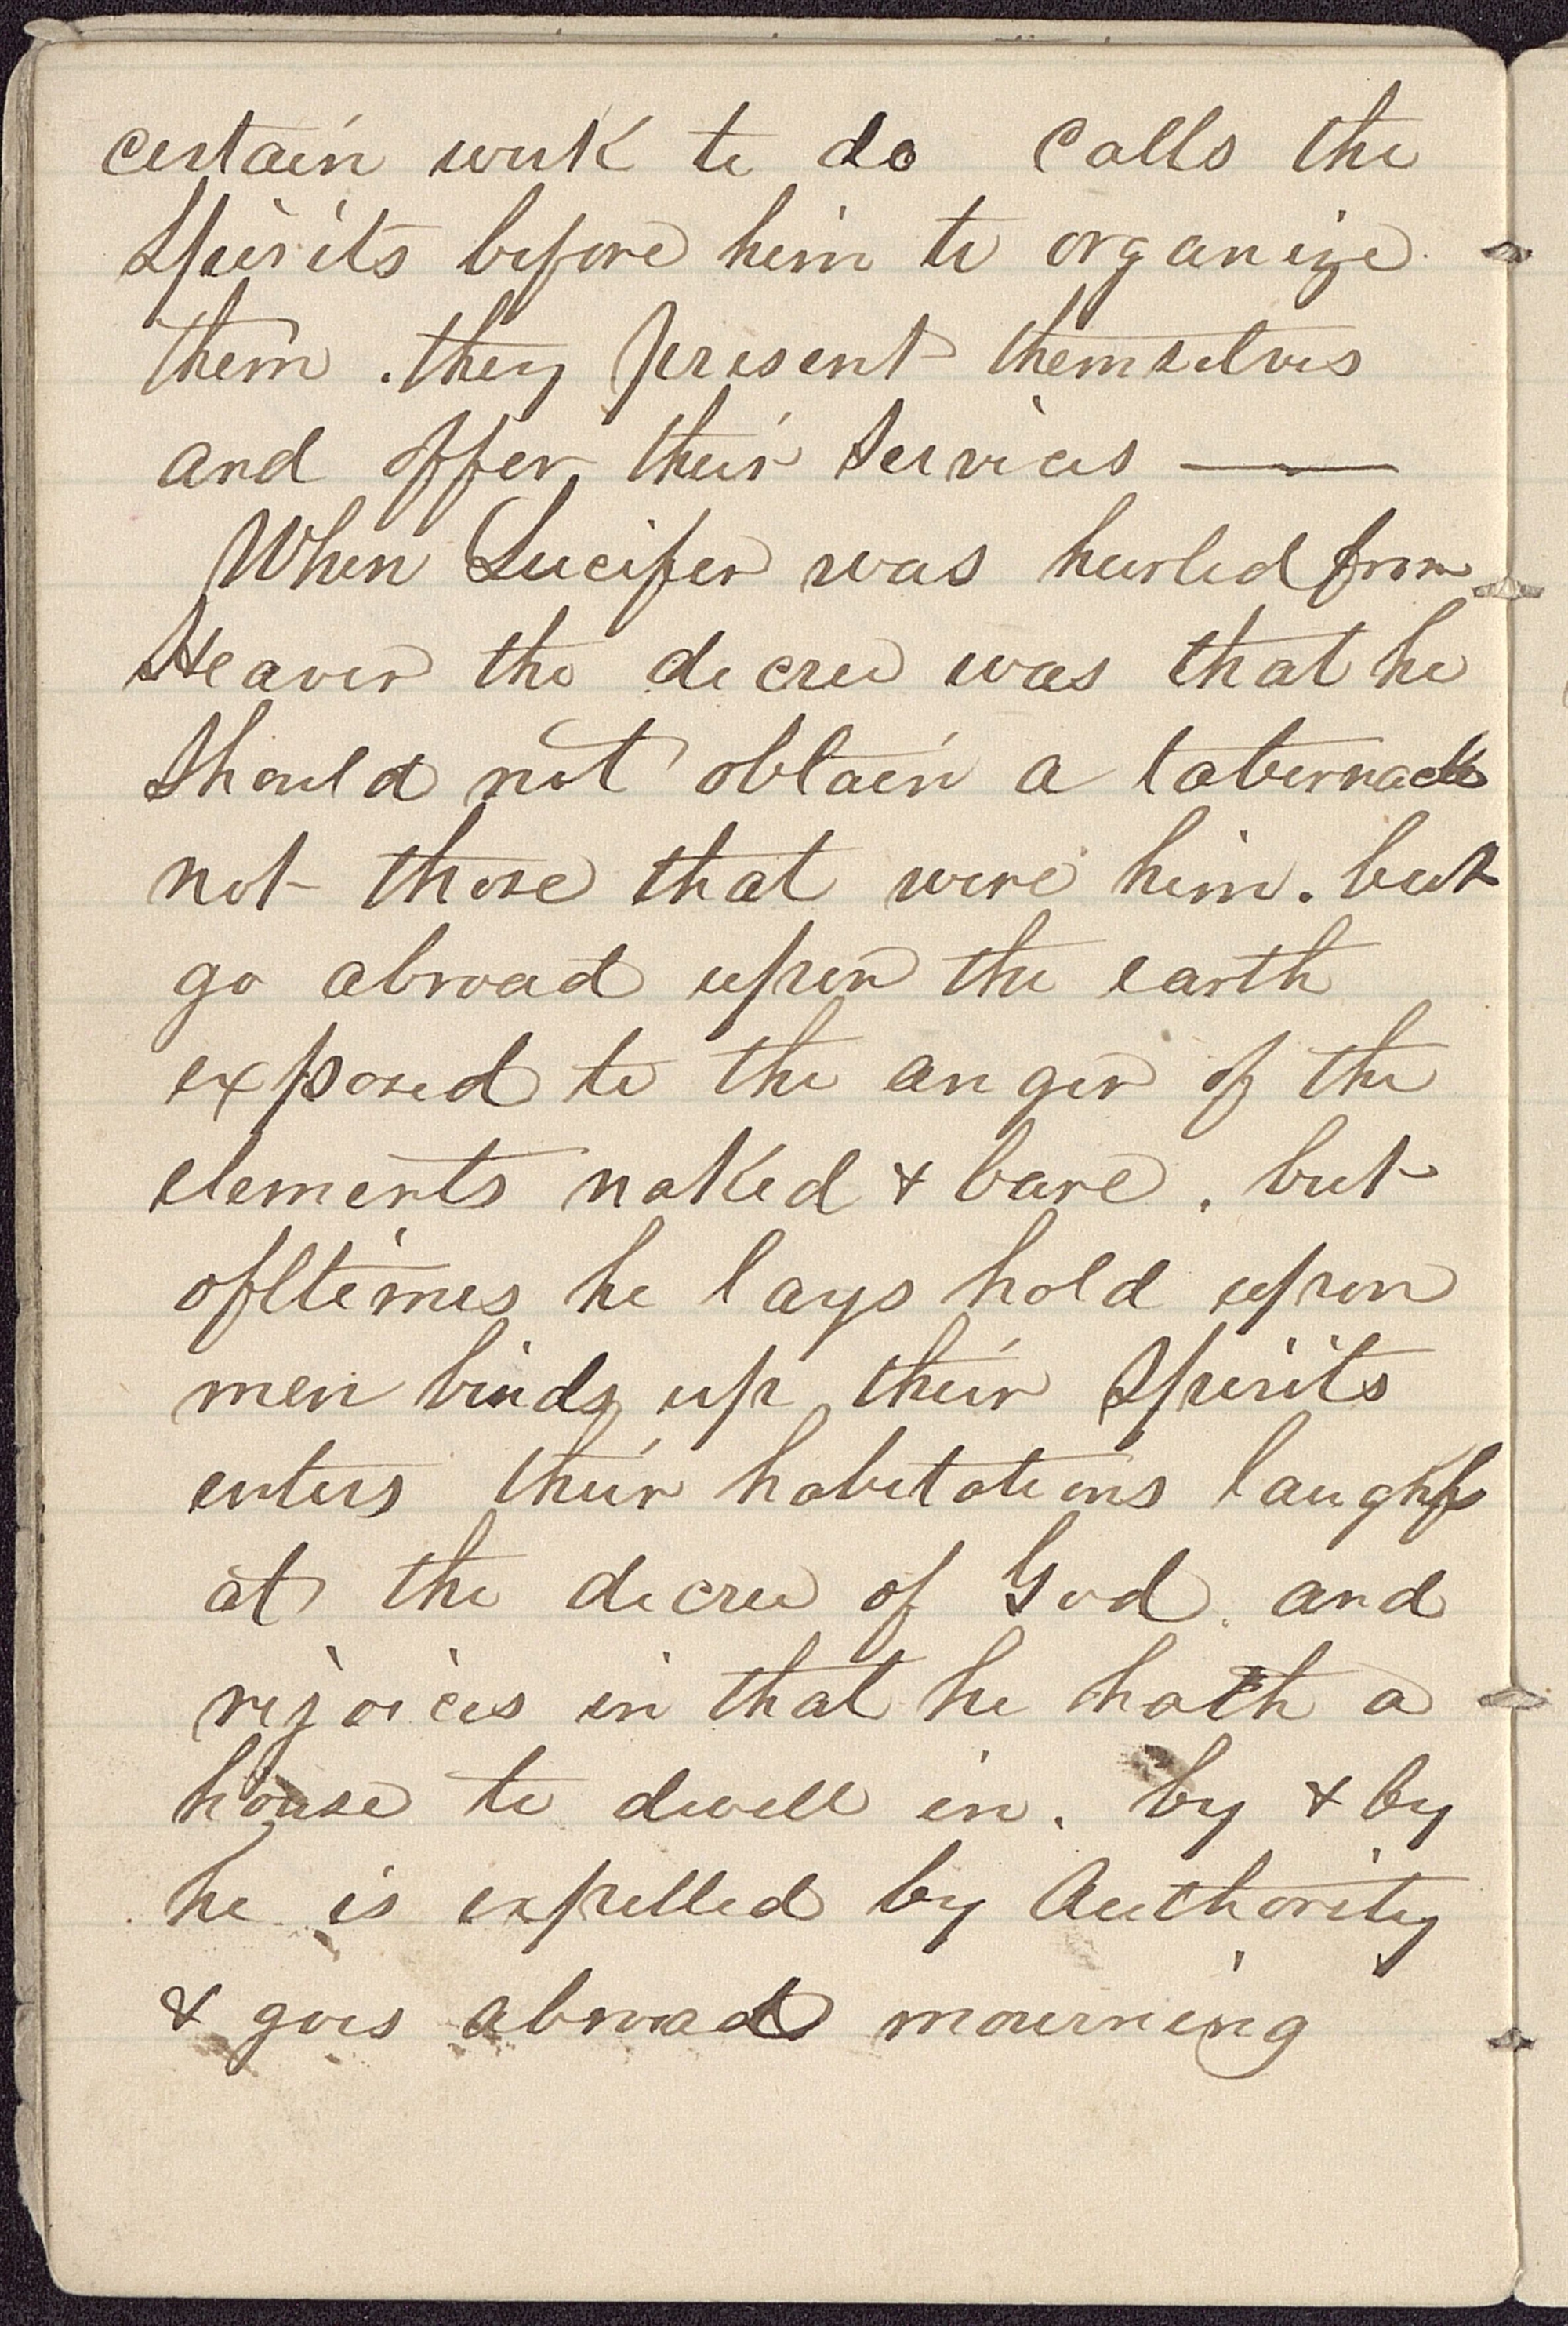 certain work to do calls the
Spirits before him to organize
them . they present themselves
and offer their Services —
When Lucifer was hurled from
Heaven the decree was that he
Should not obtain a tabernacle
not those that were him . but
go abroad upon the earth
exposed to the anger of the
elements naked & bare . but
ofttimes he lays hold upon
men binds up their Spirits
enters their habitations laughs
at the decree of God and
rejoices in that he hath a
house to dwell in . by & by
he is expelled by Authority
& goes abroad mourning